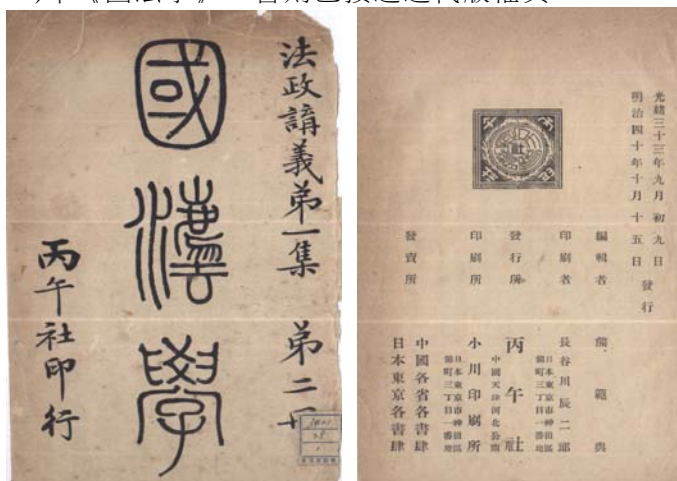 法政講義弟一集 弟二冊
國灋學
丙午社印行
光緒三十三年九月初九日
明治四十年十月十五日
發行
編輯者 熊範輿
印刷者 長谷川辰二郎
日本東京市神田區
錦町三丁目一番地
發行所 丙午社
中國天津河北公園
印刷所 小川印刷所
日本東京市神田區
錦町三丁目一番地
發賣所 中國各省各書肆
日本東京各書肆